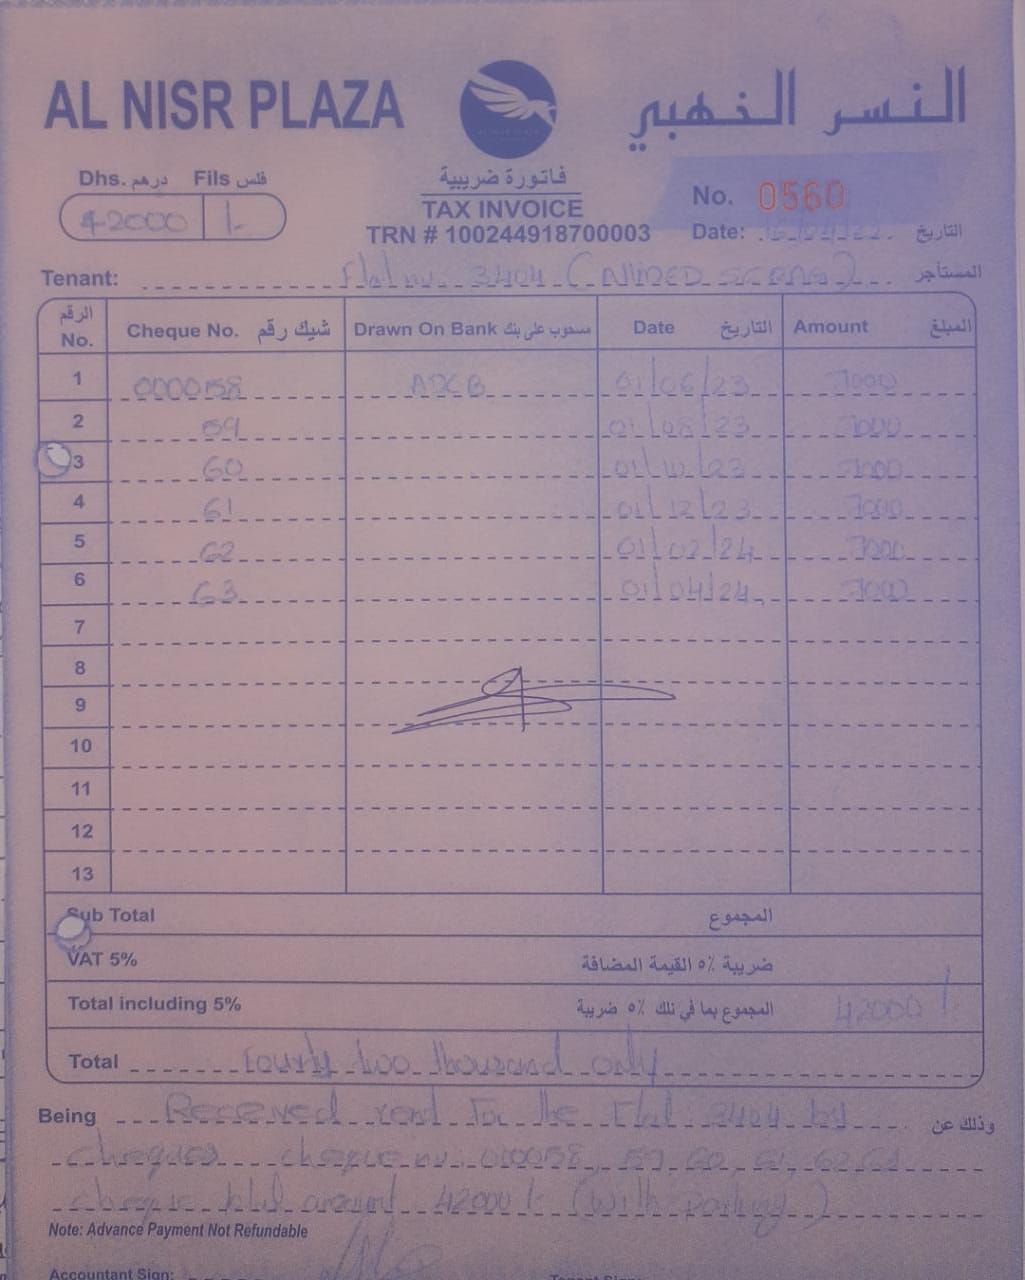 AL NISR PLAZA
النسر الذهبي
Dhs. درهم Fils فلس
42000 /-
فاتورة ضريبية
TAX INVOICE
TRN # 100244918700003
No. 0560
Date: التاريخ
Tenant: Flat no. 3404 المستأجر
الرقم No. Cheque No. شيك رقم Drawn On Bank مسحوب على بنك Date التاريخ Amount المبلغ
1 0000058 ADCB 01/06/23 7000
2 59 01/08/23 7000
3 60 01/10/23 7000
4 61 01/12/23 7000
5 62 01/02/24 7000
6 63 01/04/24 7000
7
8
9
10
11
12
13
Sub Total المجموع
VAT 5% ضريبة ٥٪ القيمة المضافة
Total including 5% المجموع بما في ذلك ٥٪ ضريبة 42000/-
Total Fourty two thousand only
Being Received rent for the Flat 3404 by وذلك عن
cheques cheque no. 59, 60, 61, 62,
cheque total amount 42000/- (with parking)
Note: Advance Payment Not Refundable
Accountant Sign:
Tenant Sign: